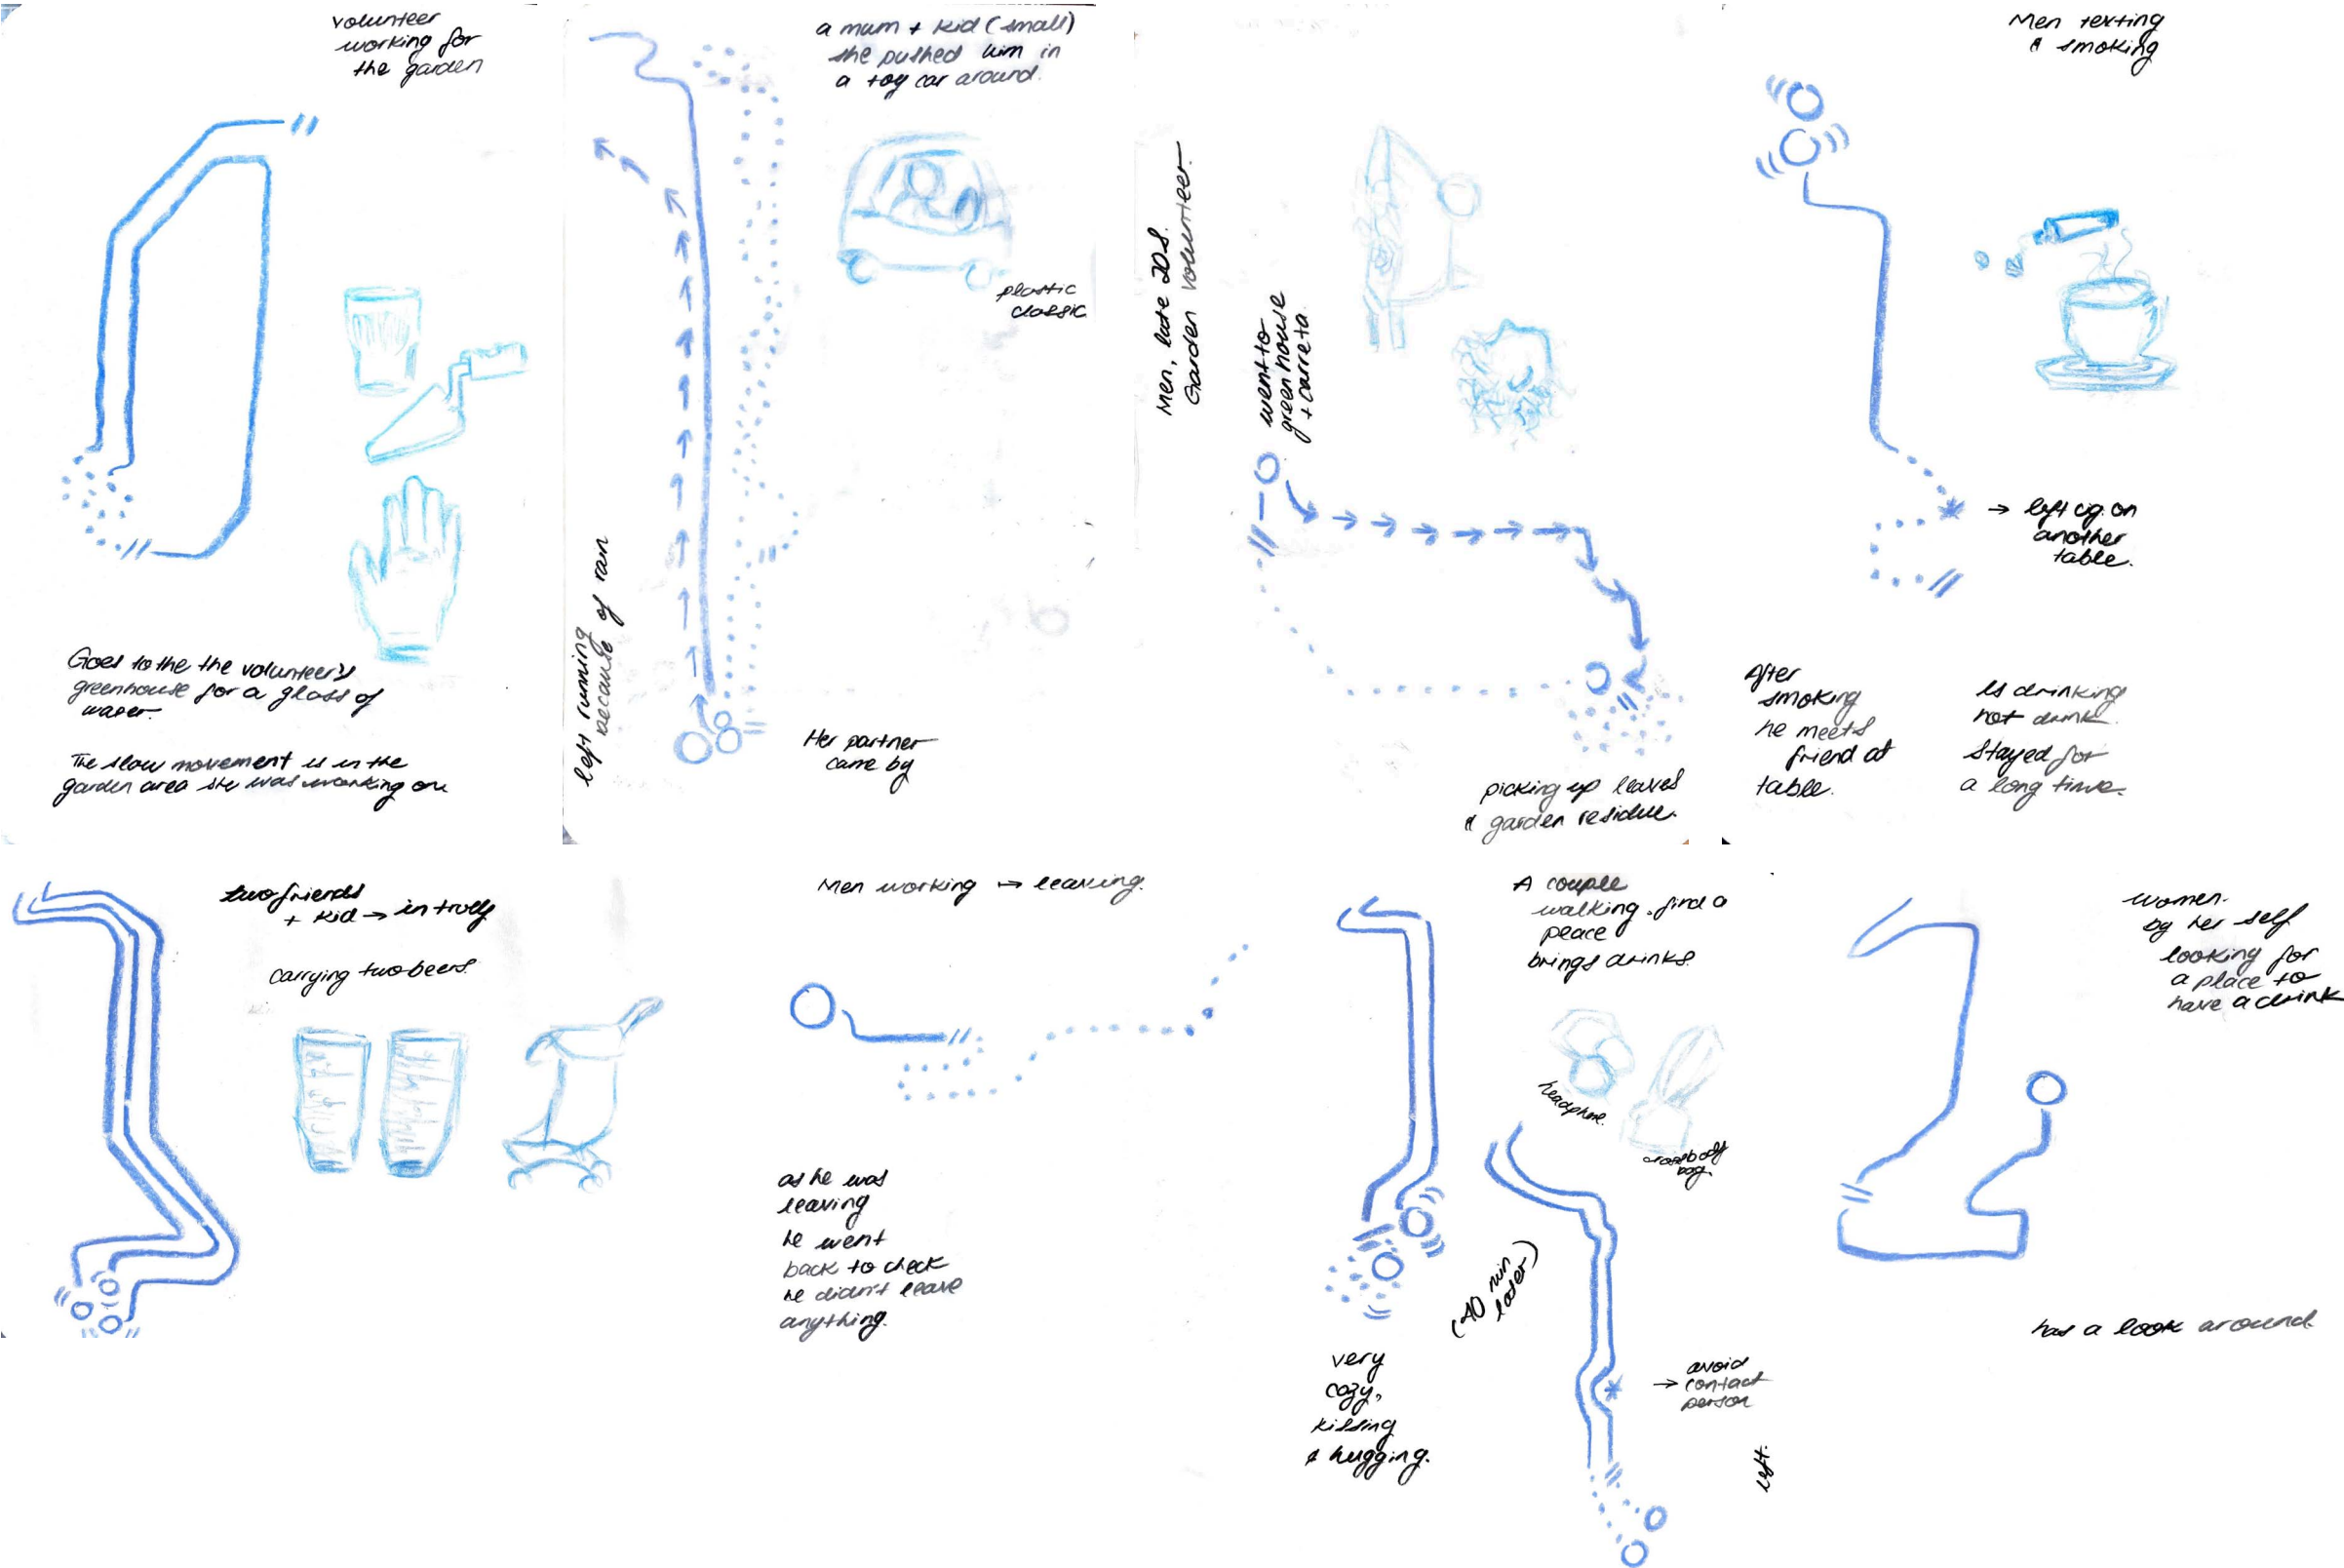 volunteer
working for
the garden
Goes to the the volunteer's
greenhouse for a glass of
water.
The slow movement is in the
garden area she was working on
a mum + kid (small)
she pushed him in
a toy car around.
plastic
classic
left running
because of rain
Her partner
came by
Men, late 20s.
Garden volunteer.
went to
green house
+ carreta.
picking up leaves
& garden residue.
Men texting
& smoking
→ left cig. on
another
table.
After
smoking
he meets
friend at
table.
Is drinking
hot drink.
Stayed for
a long time.
two friends
+ kid → in trolly
carrying two beers.
Men working → leaving.
as he was
leaving
he went
back to check
he didn't leave
anything.
A couple
walking. find a
peace
brings drinks.
headphone.
crossbody
bag.
(40 min
later)
very
cozy,
kissing
& hugging.
→ avoid
contact
person
left.
women.
by her self
looking for
a place to
have a drink
has a look around.